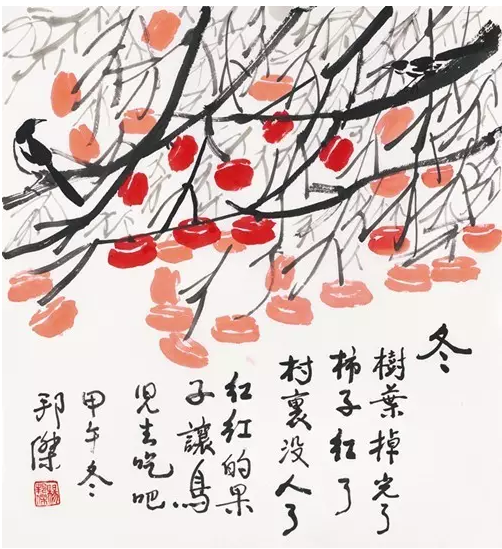 冬
樹葉掉光了
柿子红了
村裏没人了
红红的果
子讓鳥
児去吃吧
甲午冬
邦傑